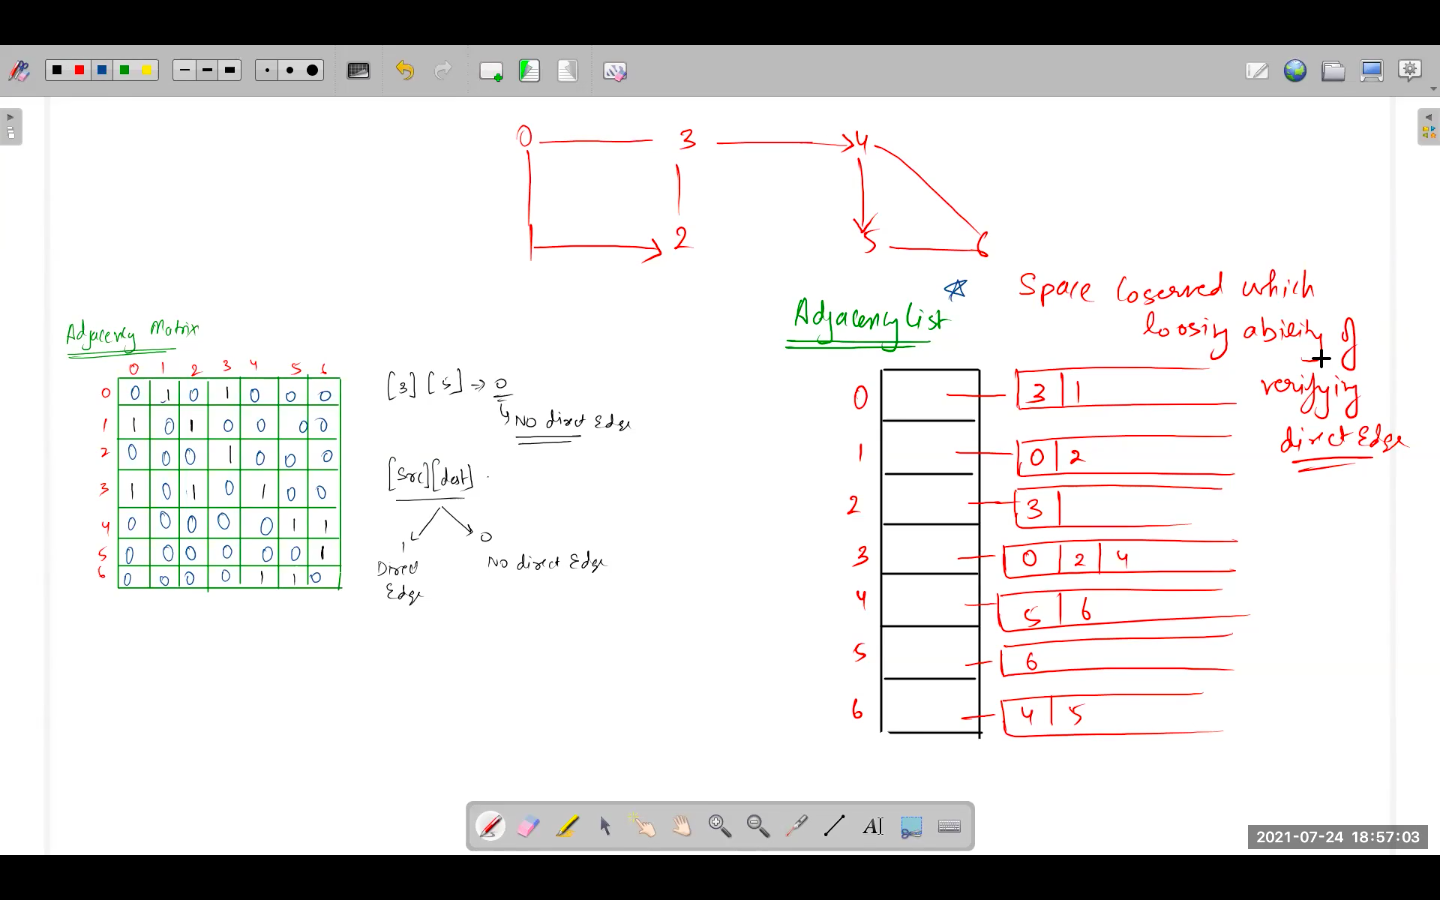 0 3 4
2 5 6
Adjacency Matrix
0 1 2 3 4 5 6
0 0 1 0 1 0 0 0
1 1 0 1 0 0 0 0
2 0 0 0 1 0 0 0
3 1 0 1 0 1 0 0
4 0 0 0 0 0 1 1
5 0 0 0 0 0 0 1
6 0 0 0 0 1 1 0
[3] [5] → 0
NO direct Edge
[Src][dest]
1 0
Direct
Edge
NO direct Edge
Adjacency List
Space Coserved which
loosing ability of
verifying
direct Edge
0 3 1
1 0 2
2 3
3 0 2 4
4 5 6
5 6
6 4 5
A
2021-07-24 18:57:03